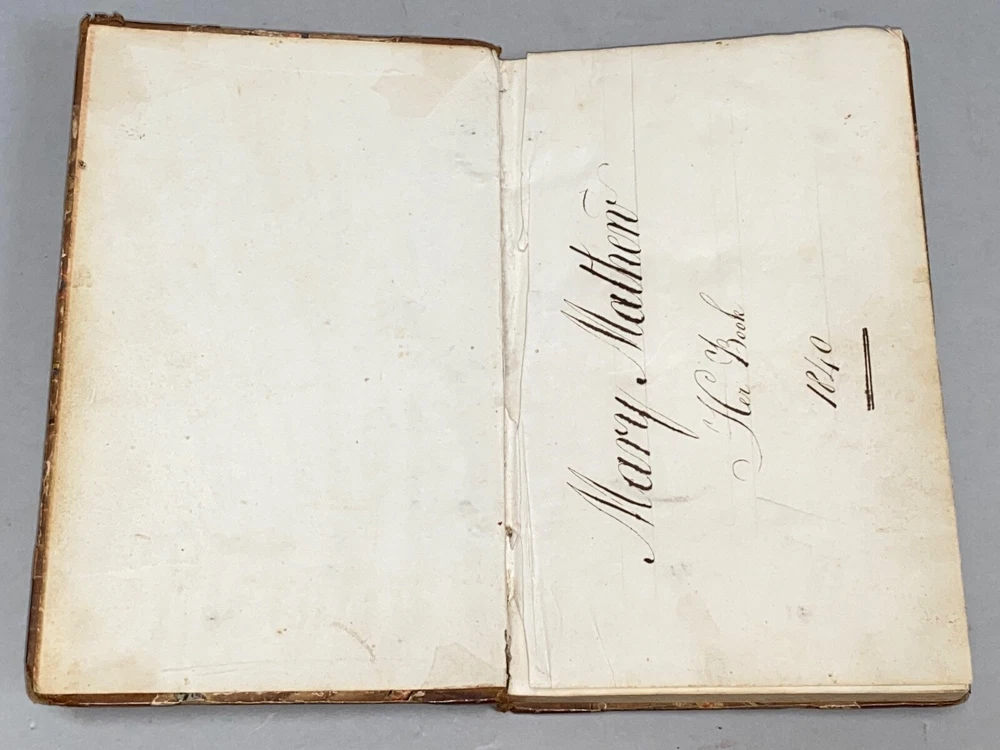 Mary Mathew
Her Book
1840